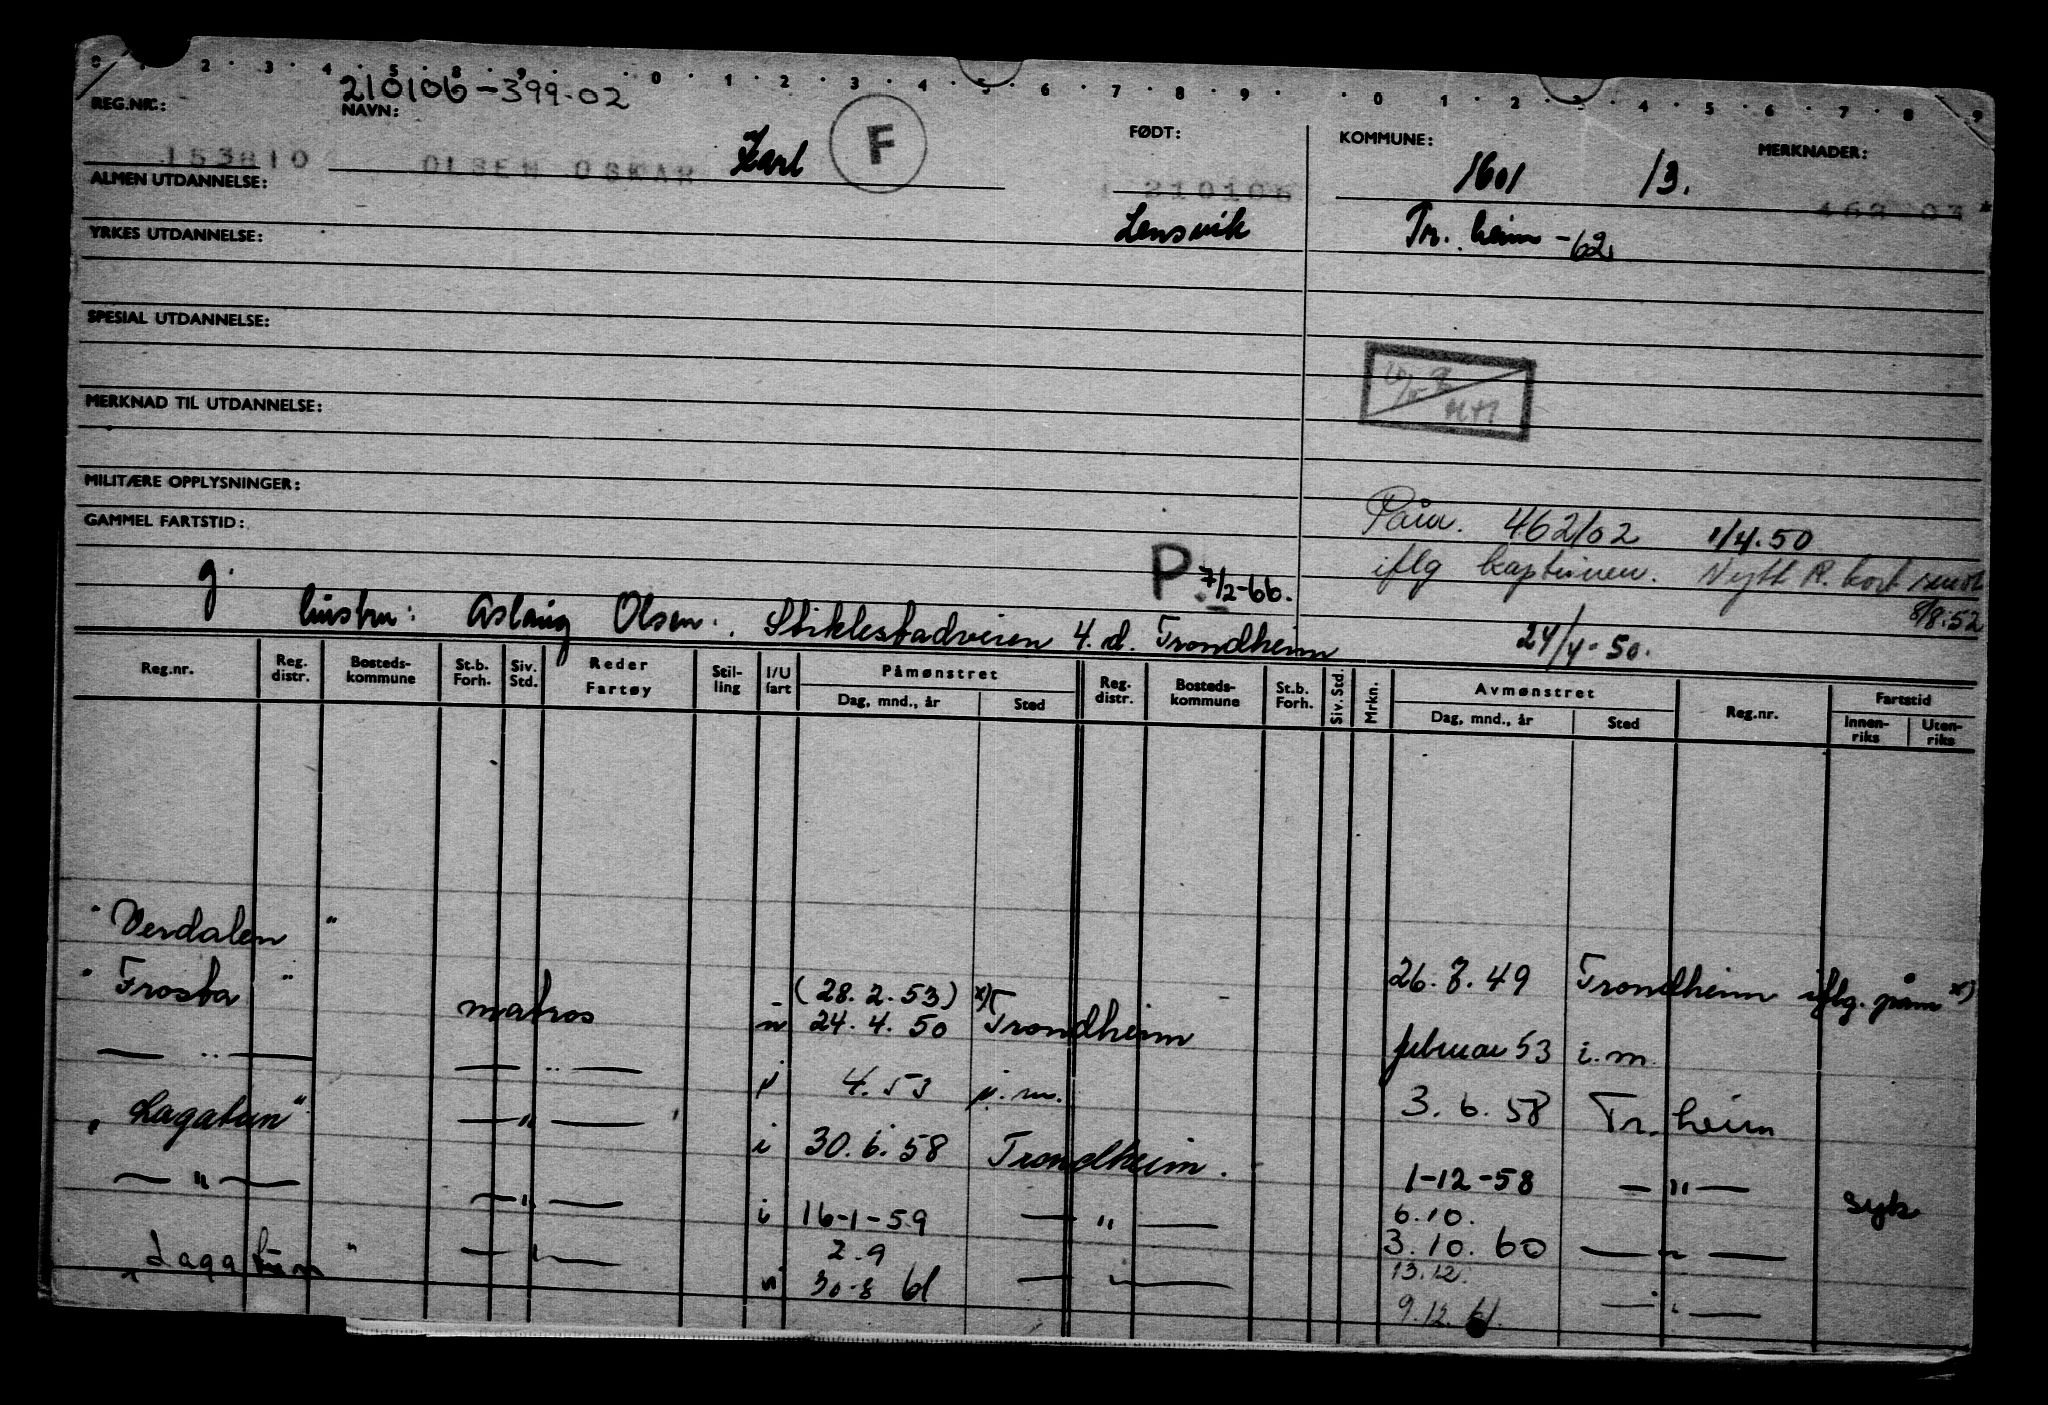 210106-399.02
REG.NR.: NAVN: FØDT: KOMMUNE: MERKNADER:
153810 OLSEN OSKAR Karl F 210106 1601 13.
ALMEN UTDANNELSE: Lensvik Tr.heim -62
YRKES UTDANNELSE:
SPESIAL UTDANNELSE:
MERKNAD TIL UTDANNELSE:
MILITÆRE OPPLYSNINGER:
GAMMEL FARTSTID:
462/02 1/4.50
iflg kaptinen. Nytt R. kort sendt
8/8.52
P. 7/2-66.
g. hustru: Aslaug Olsen. Stiklestadveien 4. d. Trondheim 24/4-50.
Reg.nr. Reg. distr. Bosteds-kommune St.b. Forh. Siv. Std. Reder Fartøy Stil-ling I/U fart Påmønstret Dag, mnd., år Sted Reg. distr. Bosteds-kommune St.b. Forh. Siv. Std. Mrkn. Avmønstret Dag, mnd., år Sted Reg.nr. Fartstid Innen-riks Uten-riks
" Verdalen " 26.8.49 Trondheim iflg. påm x)
" Frosta " matros (28.2.53) x) 24.4.50 Trondheim februar 53 i.m.
— " — — " — 4.53 i.m. 3.6.58 Tr.heim
" Lagatun " — " — i 30.6.58 Trondheim. 1-12-58 — " — syk
— " — — " — i 16-1-59 — " — 6.10. 3.10.60 — " —
" Lagatun " — " — 2.9 30-8 61 — " — 13.12. 9.12.61. — " —